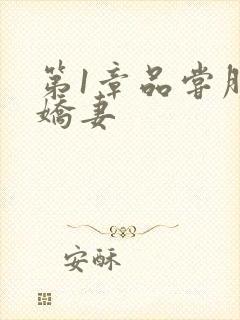 第1章品尝
娇妻
安酥